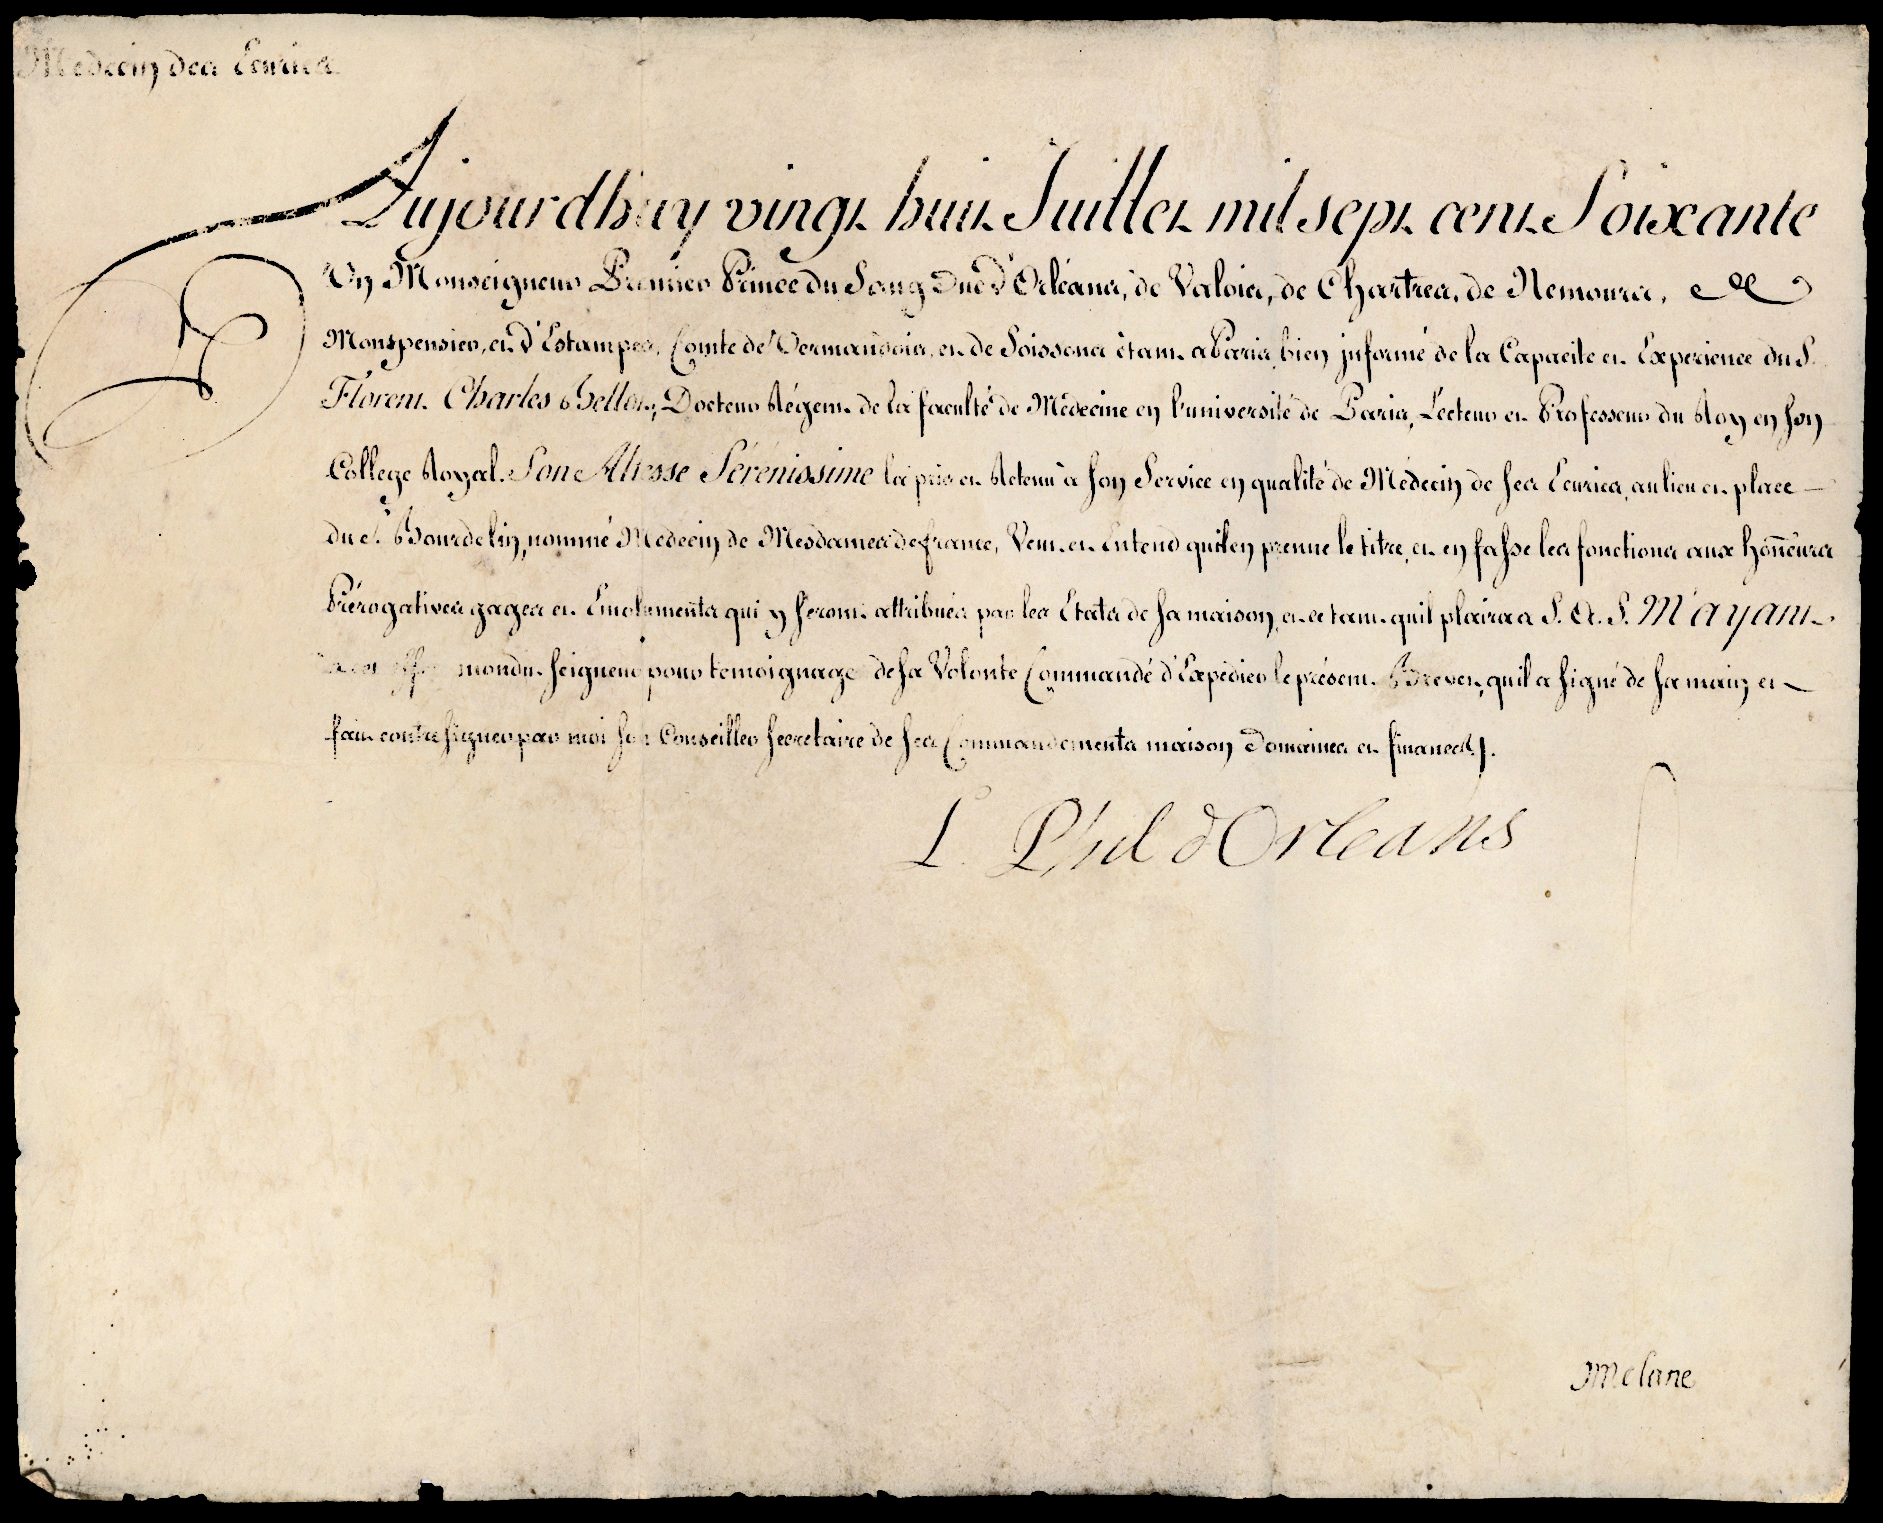 Medecin des Ecuries
Aujourdhuy vingt huit Juillet mil sept cent Soixante
Un Monseigneur Premier Prince du Sang Duc d'Orléans, de Valois, de Chartres, de Nemours, &
Montpensier, et d'Estampes, Comte de Vermandois, et de Soissons étant a Paris, bien jnformé de la Capacité et Experience du S.
Florent Charles Bellot, Docteur Régent de la faculté de Médecine en l'université de Paris, Lecteur et Professeur du Roy en son
College Royal. Son Altesse Sérénissime la pris et Retenu à son Service en qualité de Médecin de ses Ecuries, au lieu et place
du S. Bourdelin, nommé Medecin de Mesdames de france, Veut et Entend quil en prenne le titre, et en fasse les fonctions aux honneurs
Prérogatives gages et Emoluments qui y seront attribués par les Etats de sa maison, et ce tant quil plaira a S. A. S. M'ayant
mondit seigneur pour temoignage de sa Volonté Commandé d'Expédier le présent Brevet, quil a signé de sa main et
fait contresigner par moi son Conseiller secretaire de ses Commandements maison Domaines et finances.
L. Phil d'Orleans
Melane